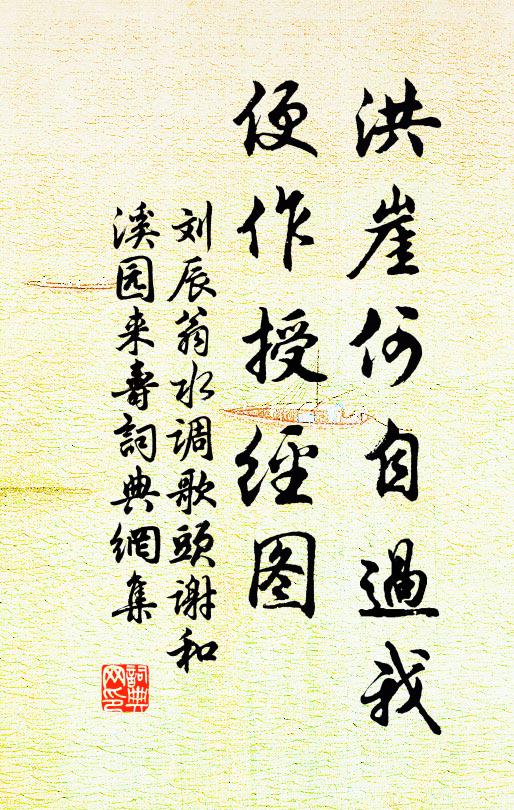 洪崖何自過我
便作授經图
刘辰翁水调歌頭谢和
溪园来壽詞典網集
詞典网印